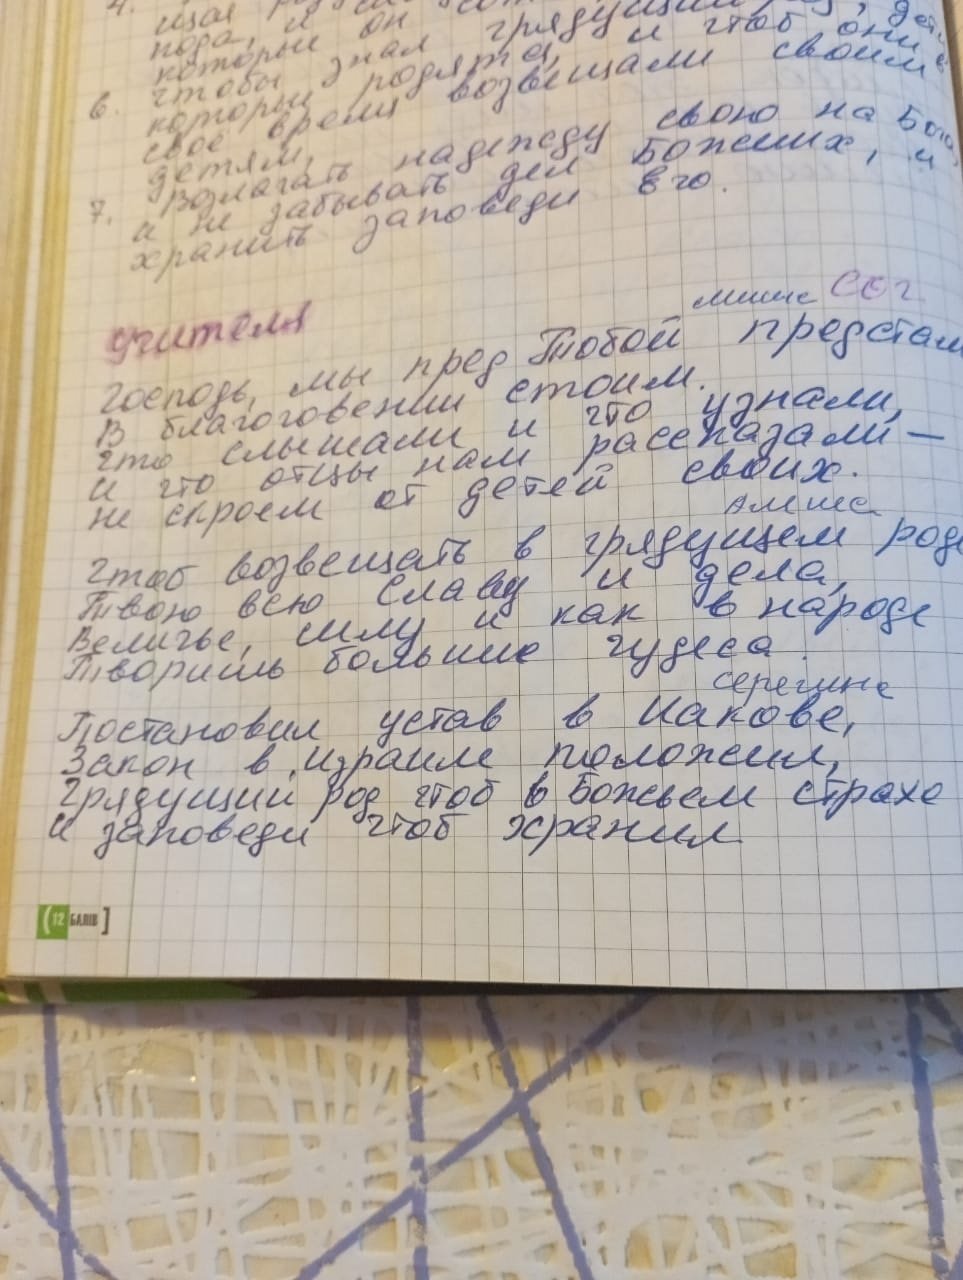 4.
пода, и
которые он
6. чтобы знал грядущий род, дети
которые родятся, и чтоб они в
своё время возвещали своим
детям,
7. Возлагать надежду свою на Бога,
и не забывать дел Божиих, и
хранить заповеди Его.
учителя
мише СОГ
Господь, мы пред Тобой предстали
В благоговении стоим.
Что слышали и что узнали,
И что отцы нам рассказали —
не скроем от детей своих.
Амиша
Чтоб возвещать в грядущем роде
Твою всю славу и дела,
Величье, силу и как в народе
Творишь большие чудеса.
серегине
Постановил устав в Иакове,
Закон в израиле положил,
Грядущий род чтоб в Божьем страхе
И заповеди чтоб хранил
(12 БАЛІВ]